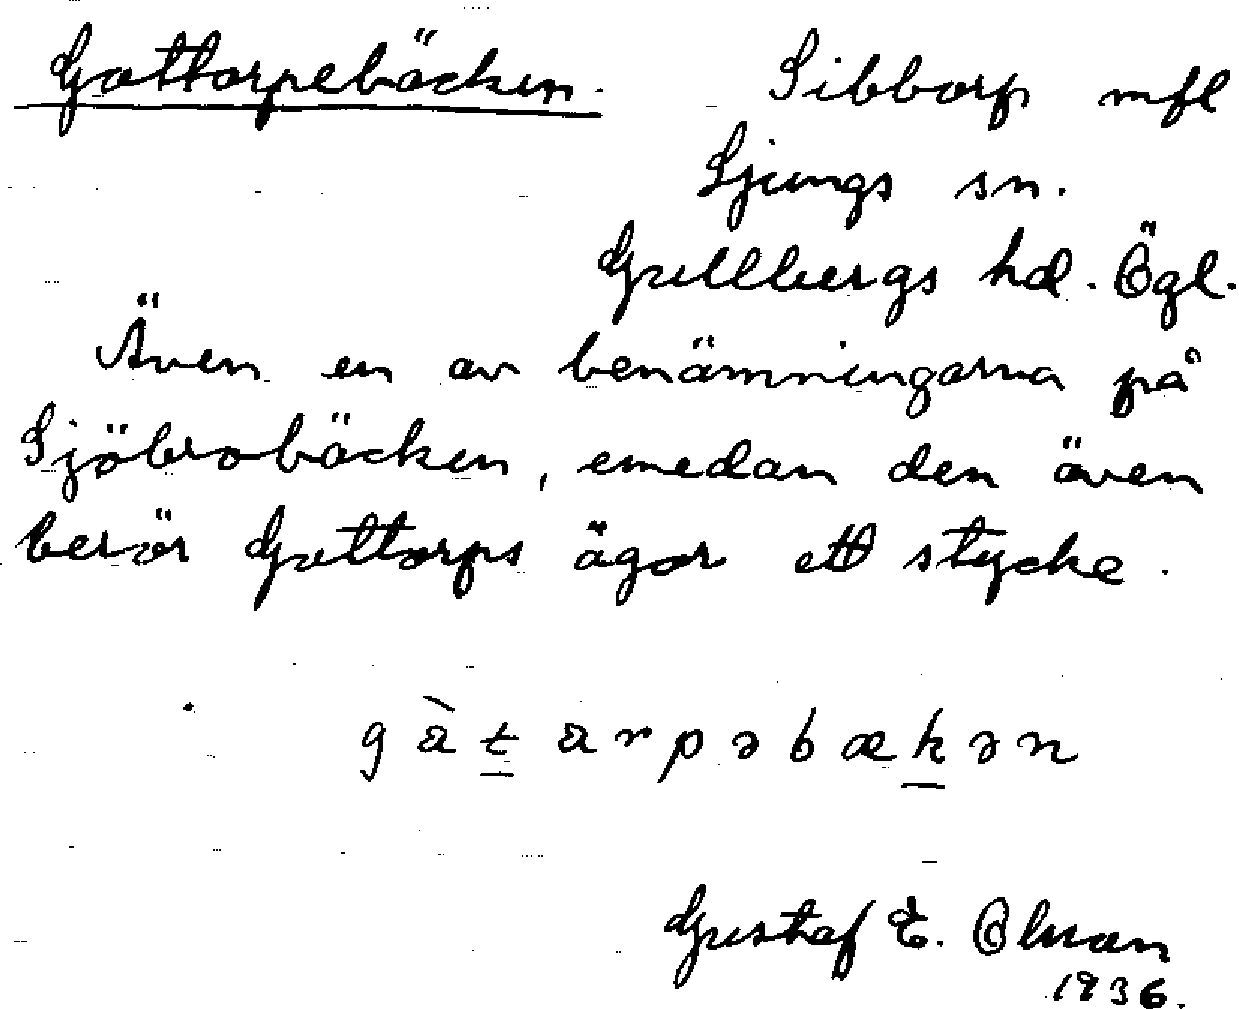 Gottorpebäcken. Sibborp mfl
Ljungs sn.
Gullbergs hd. Ögl.
Även en av benämningarna på
Sjöbrobäcken, emedan den även
berör Gottorps ägor ett stycke.
Gustaf E.
1936.